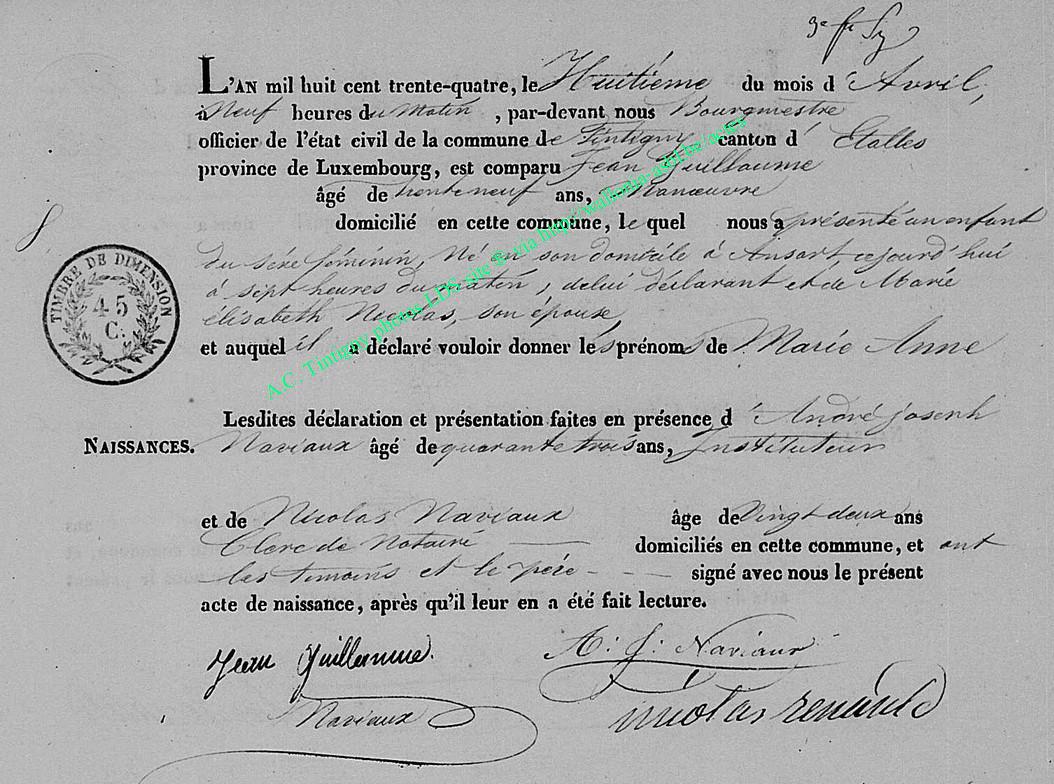 L'AN mil huit cent trente-quatre, le Huitième du mois d'Avril,
à Neuf heures du Matin, par-devant nous Bourgmestre
officier de l'état civil de la commune de Tintigny canton d'Etalles
province de Luxembourg, est comparu Jean Guillaume
âgé de trente neuf ans, Manœuvre
domicilié en cette commune, lequel nous a présenté un enfant
du sexe féminin, Né en son domicile à Ansart cejourd'hui
à sept heures du matin, de lui déclarant et de Marie
élisabeth Nicolas, son épouse,
et auquel il a déclaré vouloir donner les prénoms de Marie Anne
Lesdites déclaration et présentation faites en présence d'André joseph
NAISSANCES.
Naviaux âgé de quarante trois ans, Instituteur
et de Nicolas Naviaux âge de Vingt deux ans
Clerc de Notaire domiciliés en cette commune, et ont
les témoins et le père signé avec nous le présent
acte de naissance, après qu'il leur en a été fait lecture.
Jean Guillaume.
A: J: Naviaux
Naviaux
nicolas renauld
TIMBRE DE DIMENSION
45
C.
A.C. Tintigny photos LDS site & via http:/wallonia-asbl.be/actes